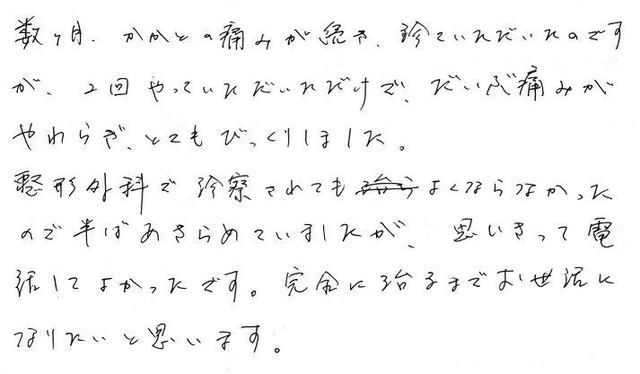 数ヶ月、かかとの痛みが続き、診ていただいたのです
が、2回やっていただいただけで、だいぶ痛みが
やわらぎ、とてもびっくりしました。
整形外科で診察されてもよくならなかった
ので半ばあきらめていましたが、思いきって電
話してよかったです。完全に治るまでお世話に
なりたいと思います。